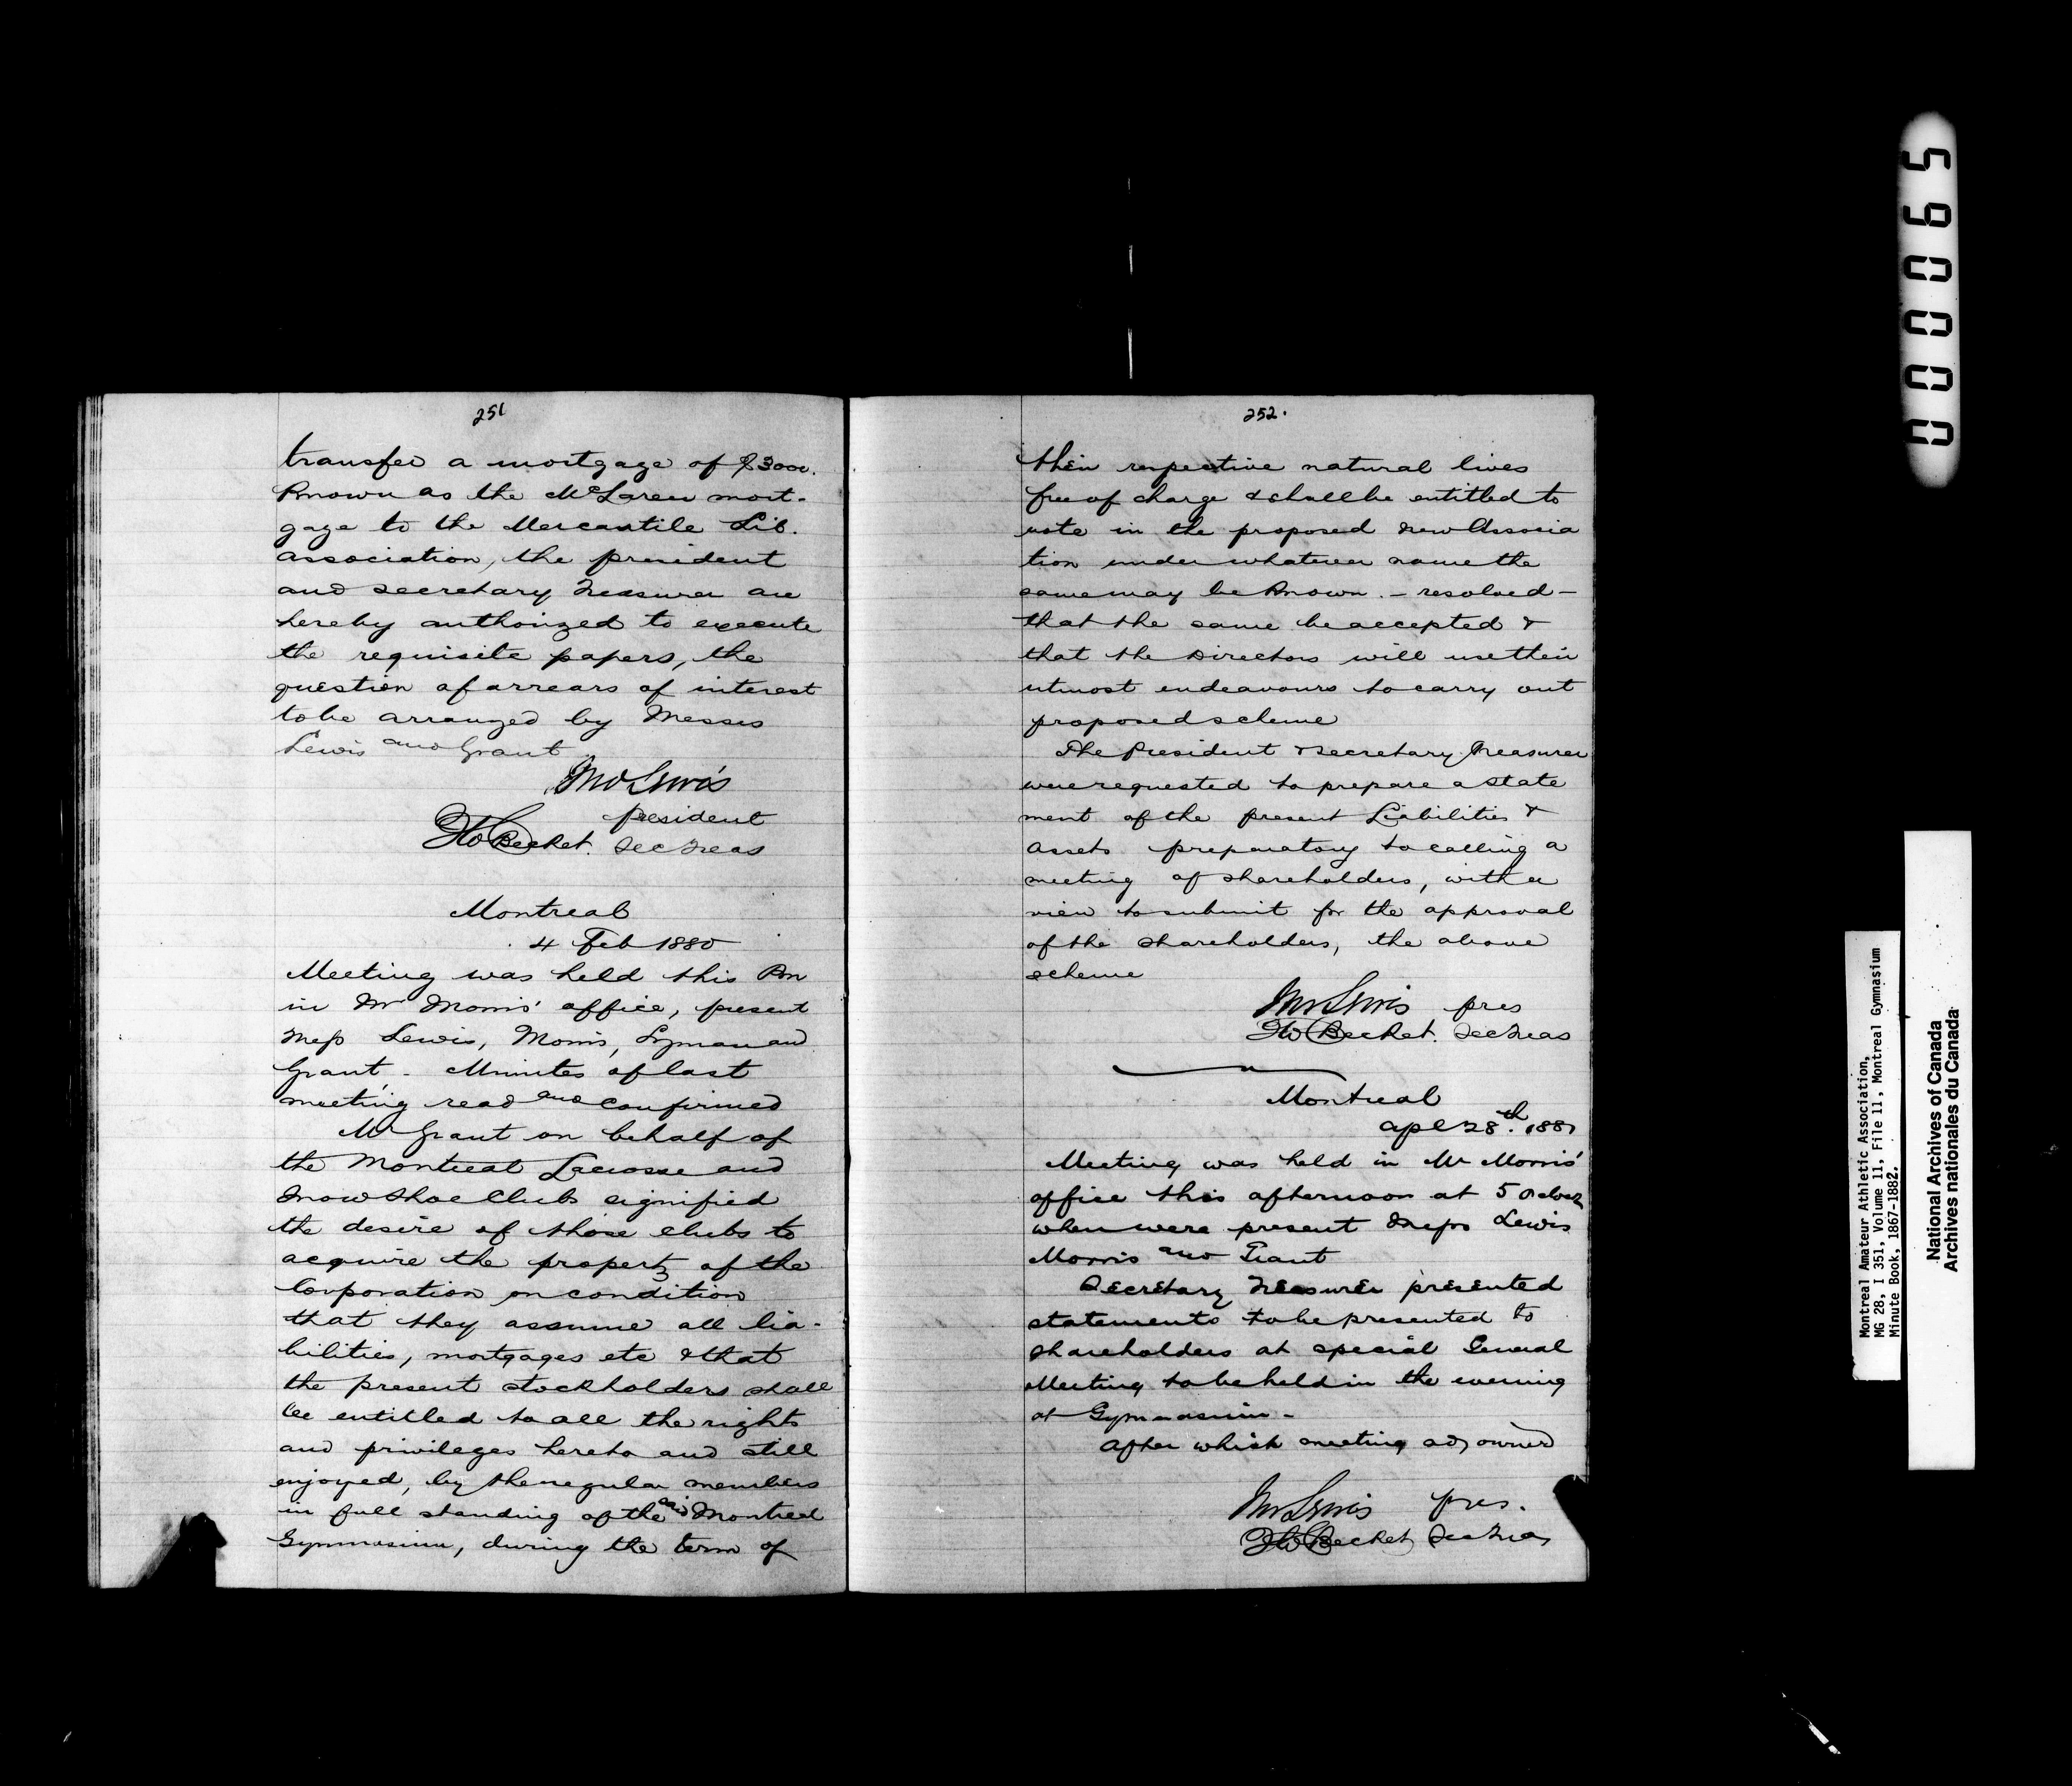 251
transfer a mortgage of $3000.
Known as the McLaren mort-
gage to the Mercantile Lib.
association, the president
and secretary Treasurer are
hereby authorized to execute
the requisite papers, the
question of arrears of interest
to be arranged by Messrs
Lewis and Grant
Jno Lewis
president
FW Becket. Sec Treas
Montreal
4 Feb 1880
Meeting was held this Pm
in Mr Morris' office, present
Mess Lewis, Morris, Lyman and
Grant - Minutes of last
meeting read and confirmed
Mr Grant on behalf of
the Montreal Lacrosse and
Snow Shoe Clubs signified
the desire of those clubs to
acquire the property of the
Corporation on condition
that they assume all lia-
bilities, mortgages etc & that
the present stockholders shall
be entitled to all the rights
and privileges hereto and still
enjoyed, by the regular members
in full standing of the Montreal
Gymnasium, during the term of
252.
their respective natural lives
free of charge & shall be entitled to
vote in the proposed new Associa
tion under whatever name the
same may be Known. - resolved -
that the same be accepted &
that the Directors will use their
utmost endeavours to carry out
proposed scheme
The President & Secretary Treasurer
were requested to prepare a state
ment of the present Liabilities &
Assets preparatory to calling a
meeting of shareholders, with a
view to submit for the approval
of the shareholders, the above
scheme
Jno Lewis pres
FW Becket. Sec Treas
Montreal
apl 28th. 1881
Meeting was held in Mr Morris'
office this afternoon at 5 oclock
when were present Messrs Lewis
Morris and Grant
Secretary Treasurer presented
statements to be presented to
shareholders at special General
Meeting to be held in the evening
at Gymnasium -
After which meeting adjourned
Jno Lewis pres.
FW Becket Sec Treas
000065
Montreal Amateur Athletic Association,
MG 28, I 351, Volume 11, File 11, Montreal Gymnasium
Minute Book, 1867-1882.
National Archives of Canada
Archives nationales du Canada